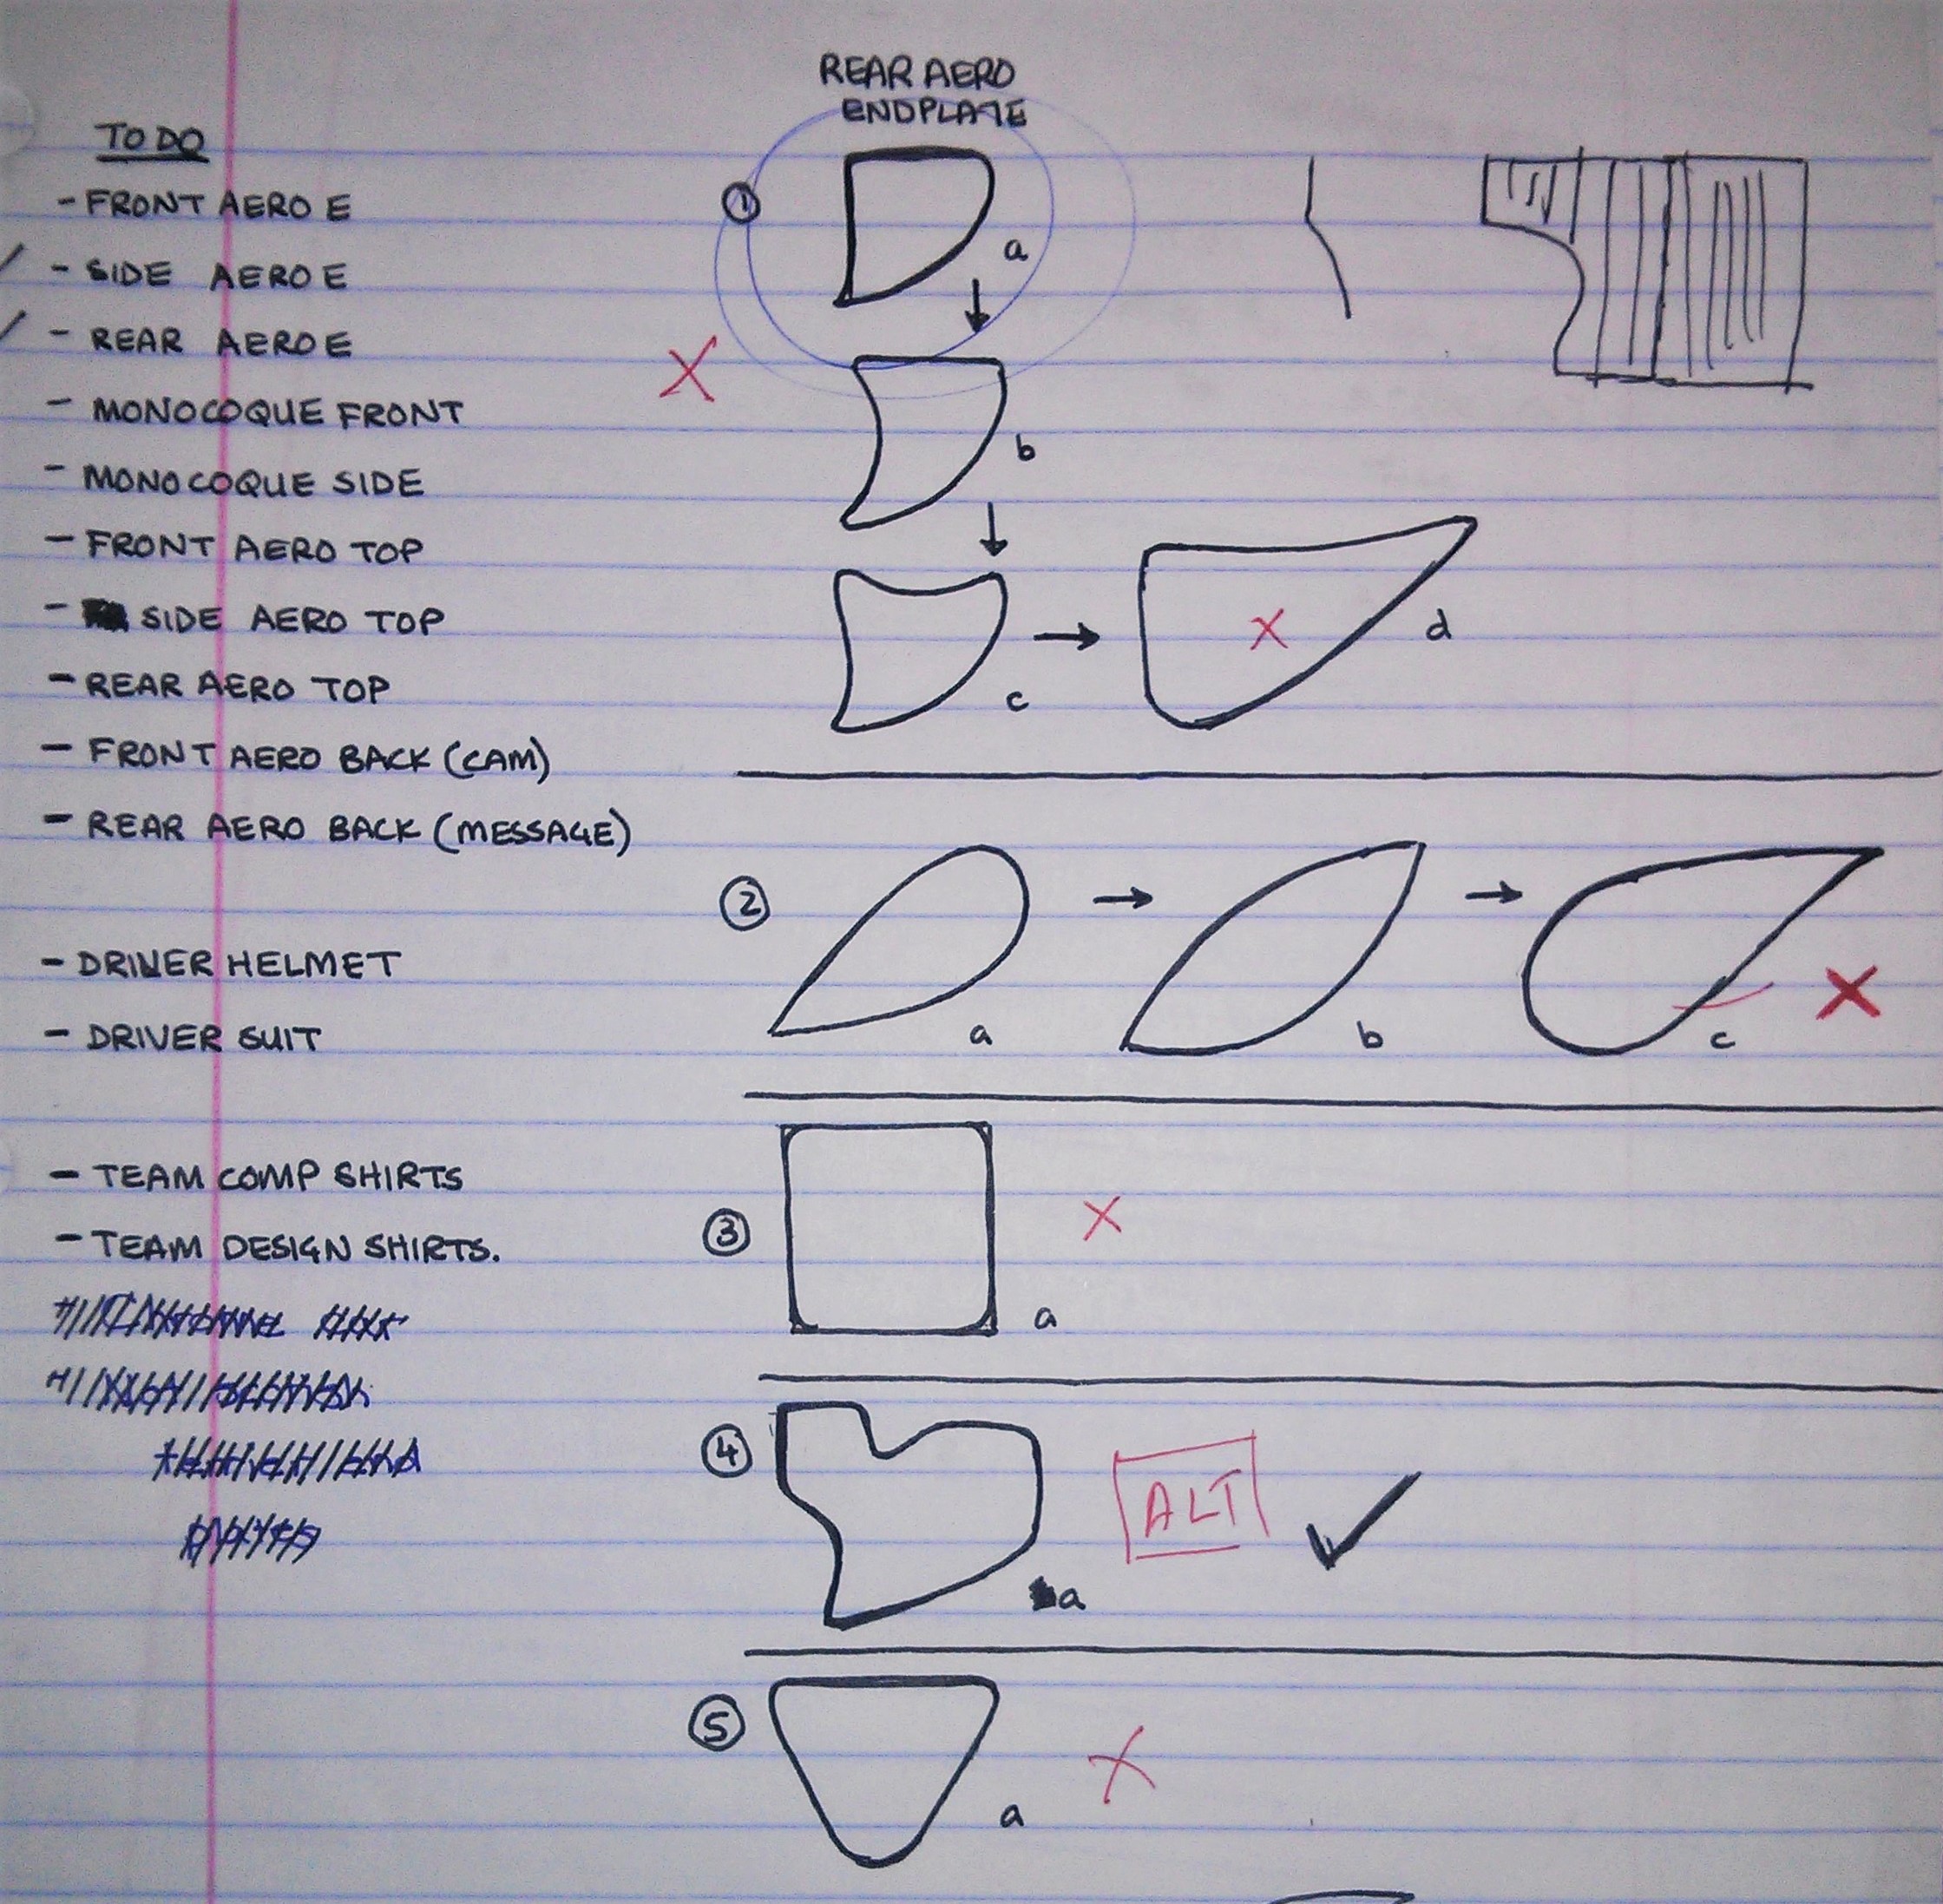 TO DO
- FRONT AERO E
- SIDE AERO E
- REAR AERO E
- MONOCOQUE FRONT
- MONOCOQUE SIDE
- FRONT AERO TOP
- SIDE AERO TOP
- REAR AERO TOP
- FRONT AERO BACK (CAM)
- REAR AERO BACK (MESSAGE)
- DRIVER HELMET
- DRIVER SUIT
- TEAM COMP SHIRTS
- TEAM DESIGN SHIRTS.
REAR AERO
ENDPLATE
1
a
b
c
d
2
a
b
c
3
a
4
ALT
a
5
a